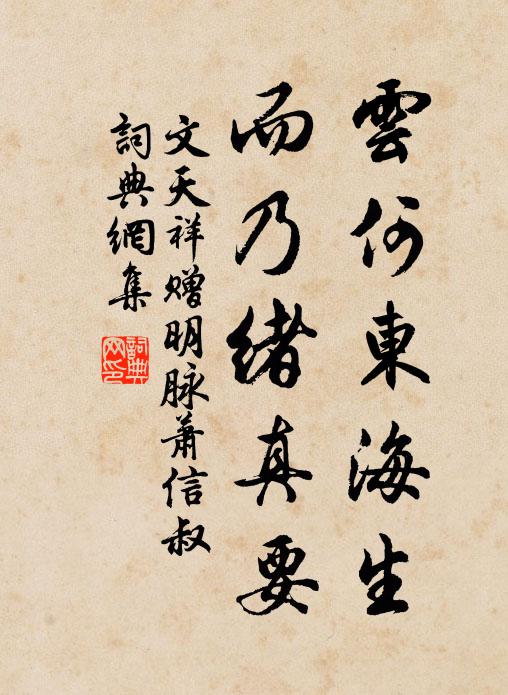 雲何東海生
而乃緒真要
文天祥赠明脉蕭信叔
詞典網集
詞典網印